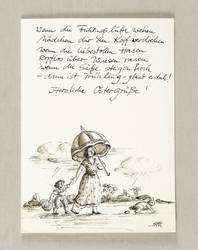 Wenn die Frühlingslüfte wehen,
Mädchen dir den Kopf verdrehen
wenn die liebestollen Hasen
kopflos über Wiesen rasen
wenn die Säfte steigen hoch
- dann ist Frühling - glaub es doch!
Herzliche Ostergrüße!